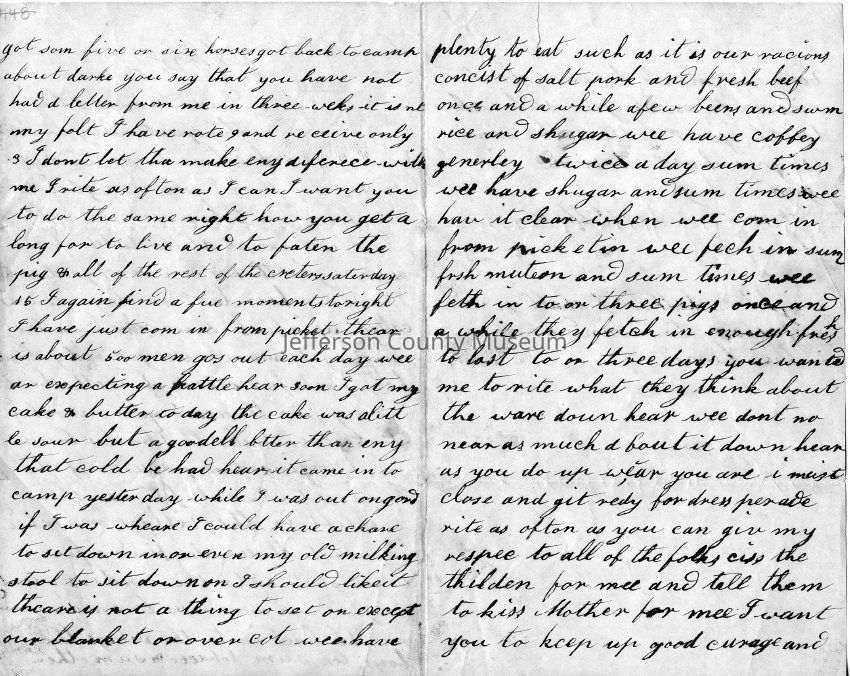 448
got som five or sixe horses got back to camp
about darke you say that you have not
had a letter from me in three weks it is nt
my folt I have rote 9 and receive only
3 I dont let tha make eny diferece with
me I rite as ofton as I can I want you
to do the same right how you get a
long for to live and to faten the
pig & all of the rest of the creters saturday
15 I again find a fue moments to right
I have just com in from picket thear
is about 500 men gos out each day wee
ar expecting a battle hear soon I got my
cake & butter to day the cake was a litt
le sour but a goodell btter than eny
that cold be had hear it came in to
camp yesterday while I was out on gord
if I was wheare I could have a chare
to set down in or even my old milking
stool to sit down on I should like it
theare is not a thing to set on except
our blanket or over cot wee have
plenty to eat such as it is our racions
concist of salt pork and fresh beef
once and a while a few beens and sum
rice and shugar wee have coffey
generley twice a day sum times
wee have shugar and sum times wee
hav it clear when wee com in
from picketin wee fech in sum
frsh muteon and sum times wee
feth in to or three pigs once and
a while they fetch in enough fresh
to last to or three days you wanted
me to rite what they think about
the ware down hear wee dont no
near as much about it down hear
as you do up wear you are i must
close and git redy for dress perade
rite as ofton as you can giv my
respec to all of the folks ciss the
thilden for mee and tell them
to kiss Mother for mee I want
you to keep up good curage and
Jefferson County Museum